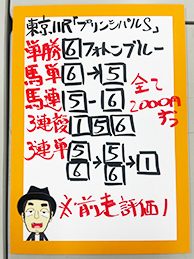 東京11R「プリンシパルS」
単勝 6 フォトンブルー
馬単 6→5
馬連 5-6
3連複 1 5 6
3連単 5 6→5 6→1
全て2000円ずつ
※前走評価！